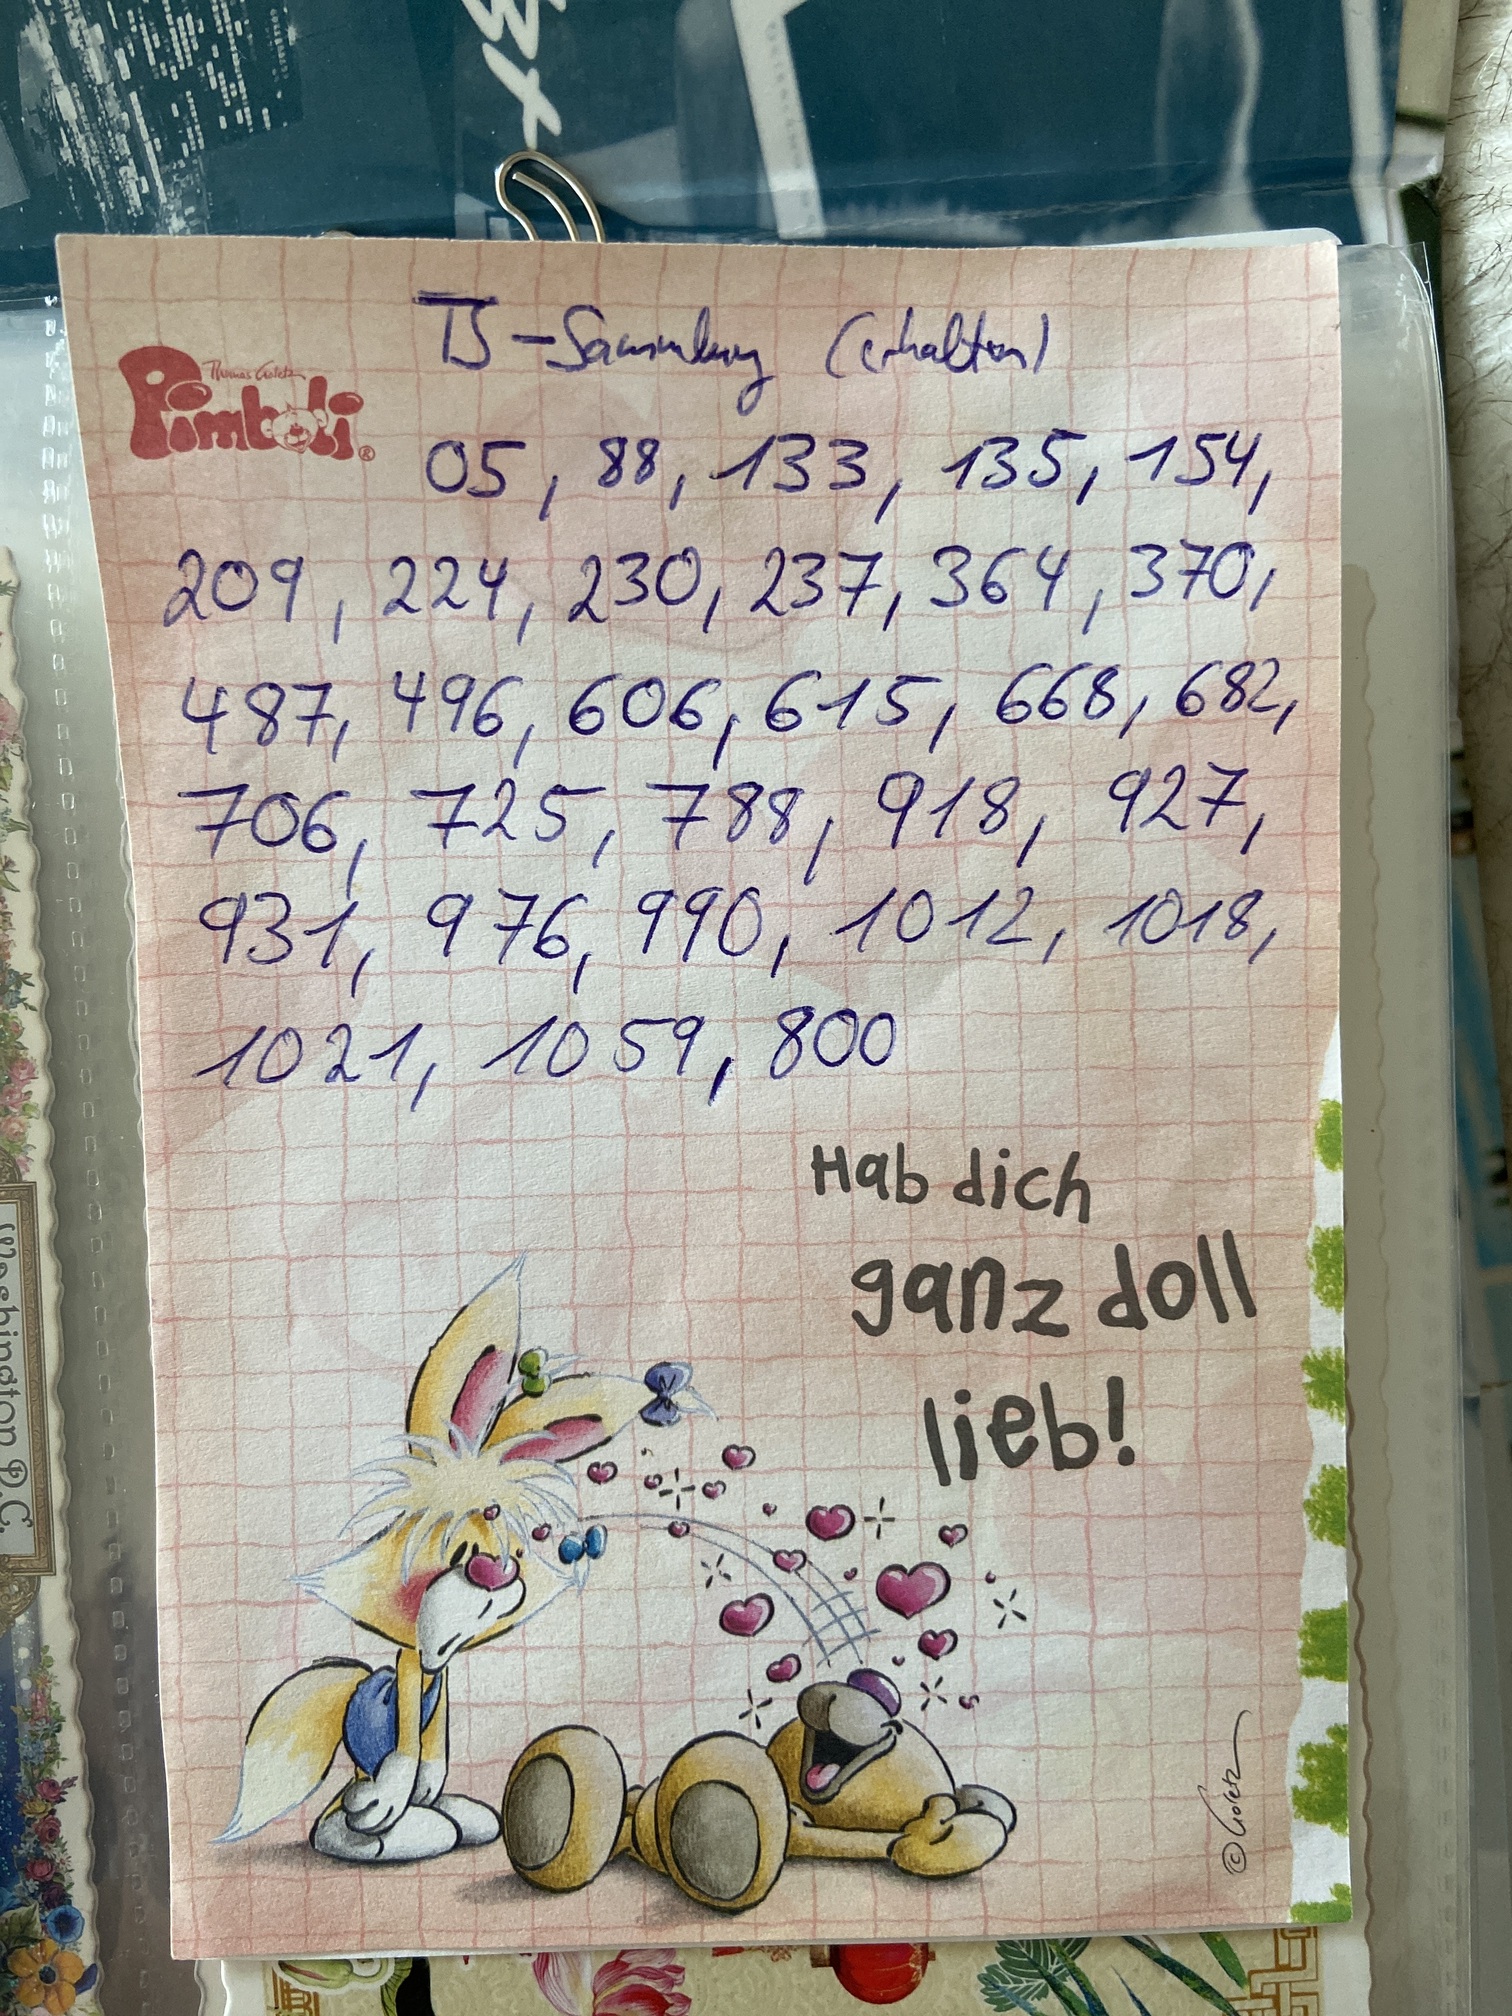 TS-Sammlung (erhalten)
Thomas Goletz
Pimboli®
05, 88, 133, 135, 154,
209, 224, 230, 237, 364, 370,
487, 496, 606, 615, 668, 682,
706, 725, 788, 918, 927,
931, 976, 990, 1012, 1018,
1021, 1059, 800
Hab dich
ganz doll
lieb!
© Goletz
Washington D.C.